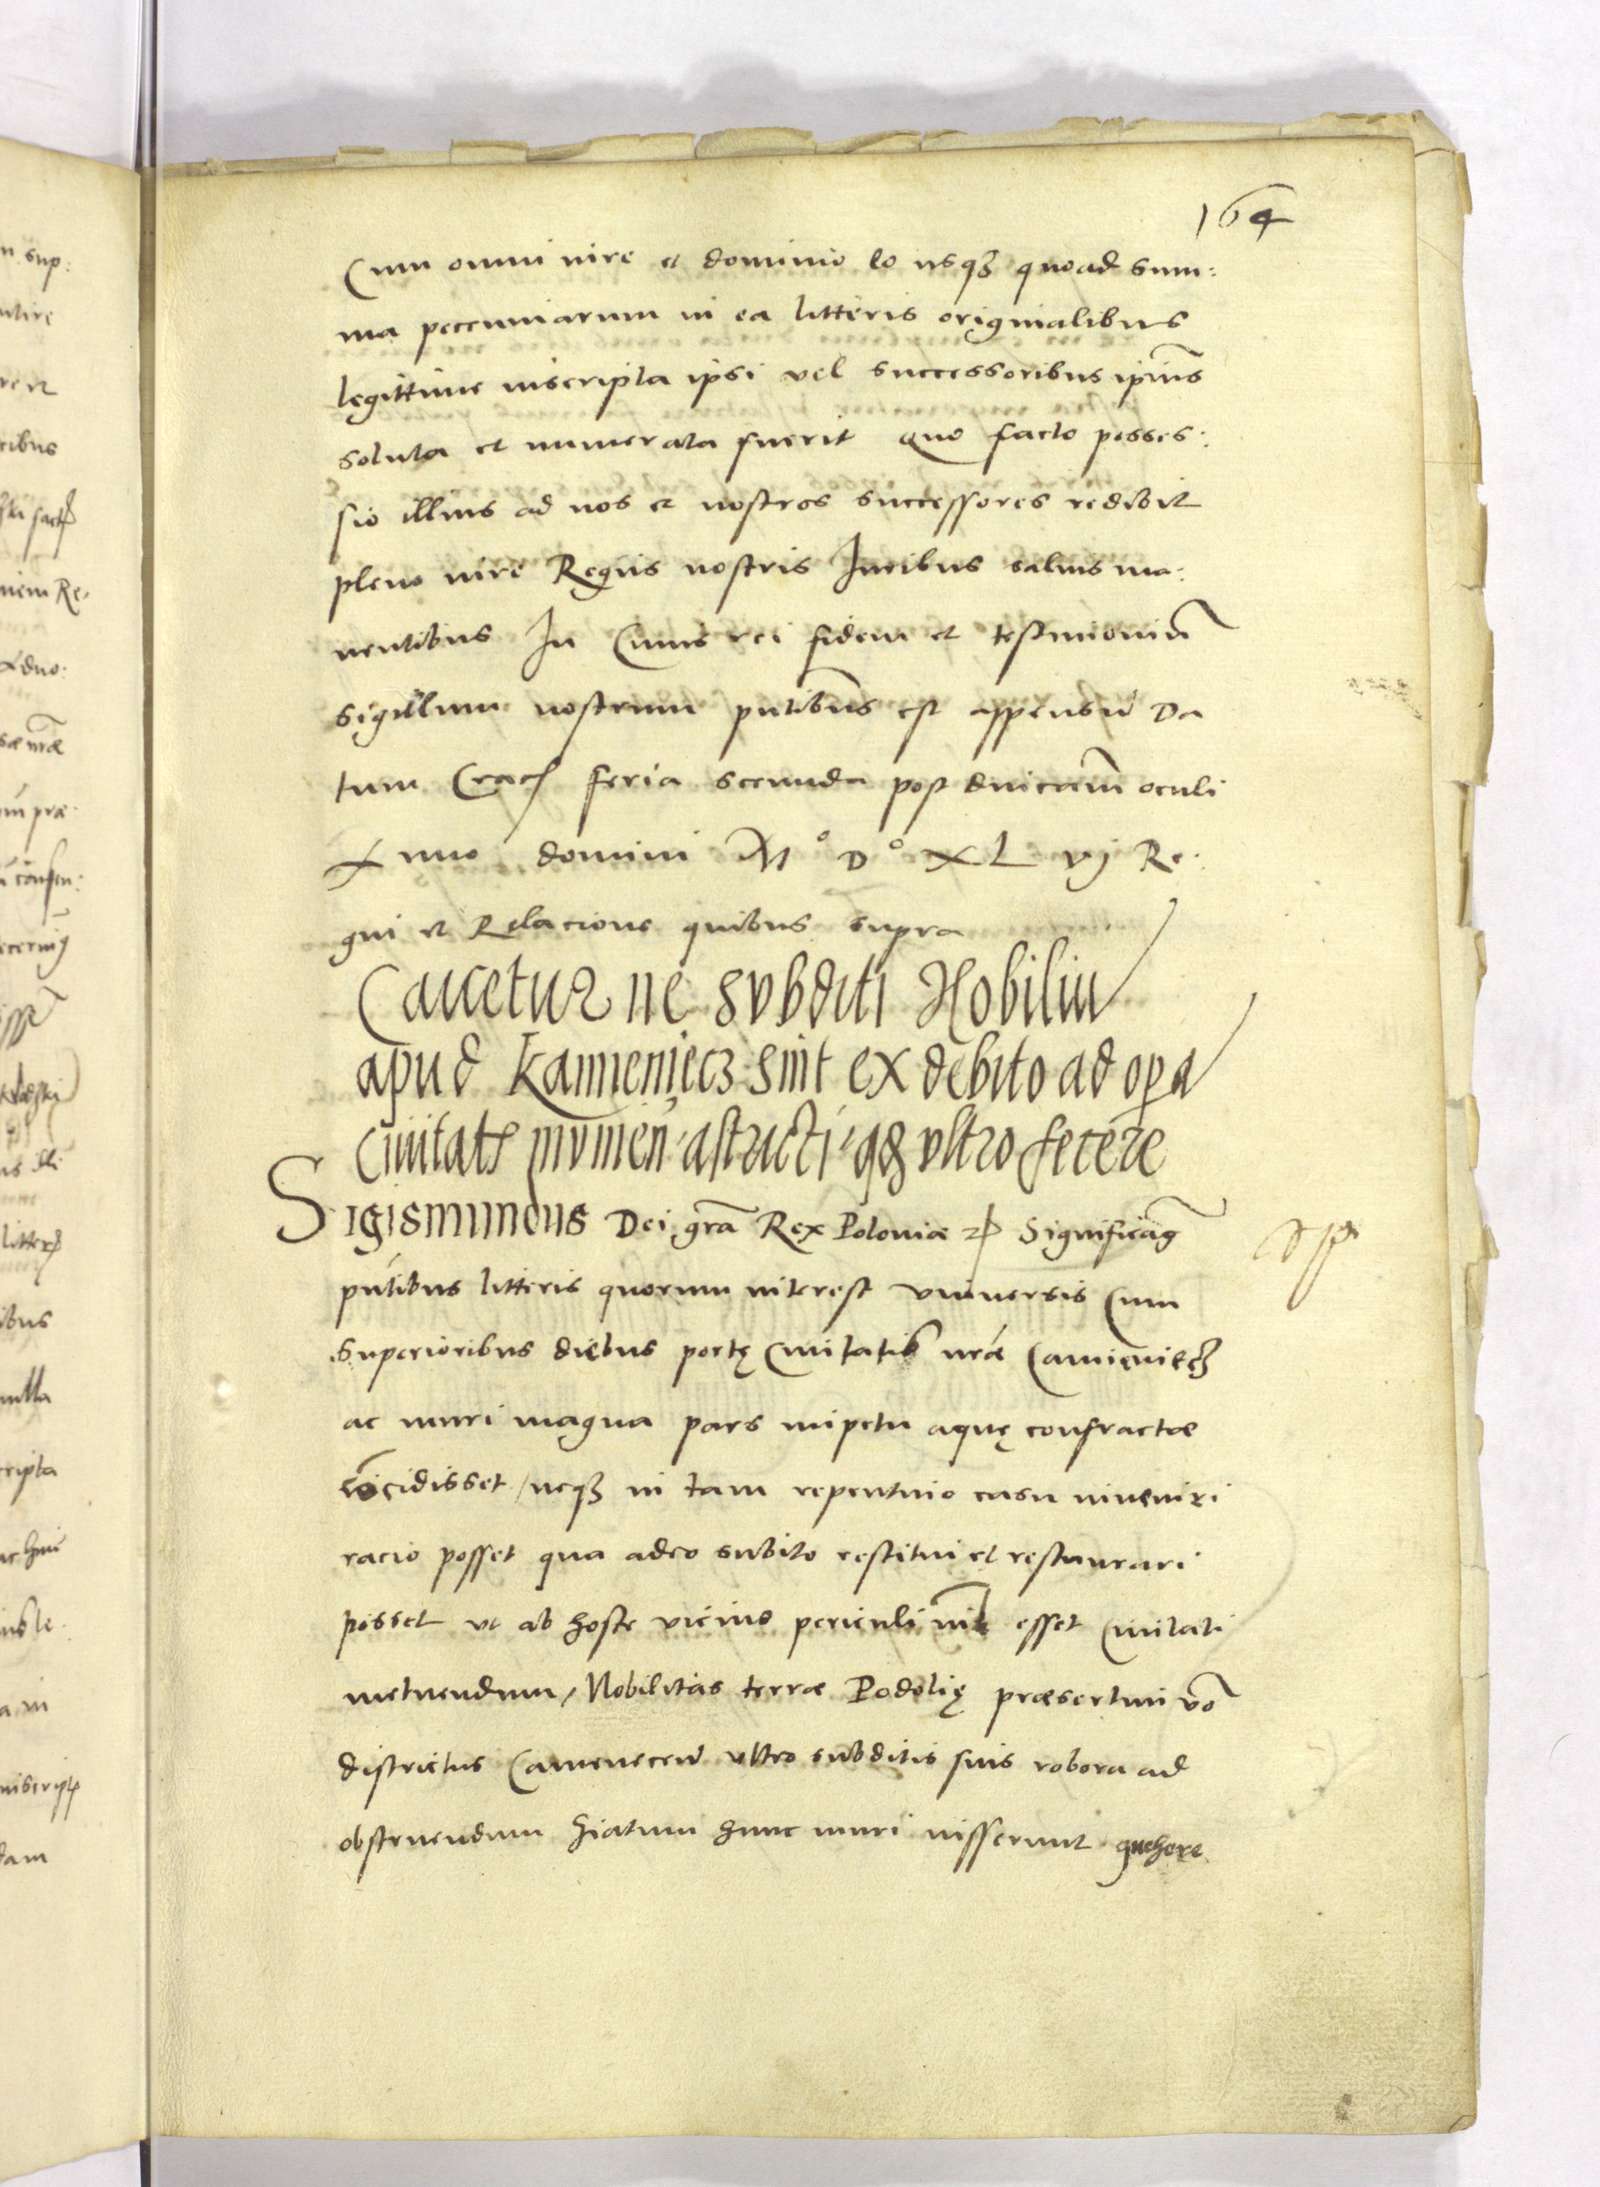 164
Cum omni iure et dominio eo usqȝ quoad sum:
ma peccuniarum in ea litteris originalibus
legittime inscripta ipsi vel successoribus ipiüs
soluta et numerata fuerit Quo facto posses:
sio illius ad nos et nostros successores redibit
pleno iure Regiis nostris Iuribus saluis ma:
nentibus In Cuius rei fidem et testimoniũ
sigillum nostrum pñtibus est appensũ Da
tum Crac feria secunda post dnicam oculi
Anno domini M° D° XL vj Re:
gni et Relacione quibus supra
Cauetur ne subditi Nobiliũ
apud Kamieniecz sint ex debito ad opa
Ciuitatꝭ mumen astricti qȝ vltro fecere
Sigismundus Dei grã Rex Poloniæ ⁊ Significãg
pñtibus litteris quorum interest vniuersis Cum
superioribus diebus portę Ciuitatis nræ Camieniecȝ
ac muri magna pars impetu aquę confractæ
cõcidisset / neqȝ in tam repentino casu inueniri
racio posset qua adeo subito restitui et restaurari
posset vt ab hoste vicino periculi nil esset Ciuitati
metuendum / Nobilitas terræ Podolię præsertim võ
districtus Camenecen vltro subditis suis robora ad
obstruendum hiatum hunc muri iusserunt